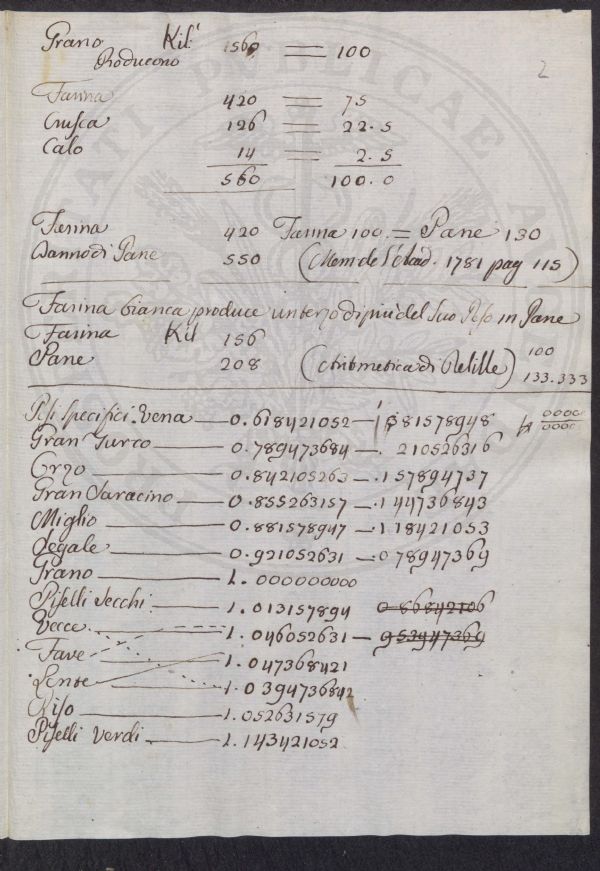 2
Grano Kil: 1560 = 100
Producono
Farina 420 = 75
Crusca 126 = 22.5
Calo 14 = 2.5
560 100.0
Farina 420 Farina 100 = Pane 130
Danno di Pane 550 (Mem de l'Acad. 1781 pag 115)
Farina bianca produce un terzo di più del suo Peso in Pane
Farina Kil 156 100
Pane 208 (Aritmetica di Relille) 133.333
Pesi specifici. Vena — 0.618421052 — 381578948 0000 0000
Gran Turco — 0.789473684 — . 210526316
Orzo — 0.842105263 — .157894737
Gran Saracino — 0.855263157 — .144736843
Miglio — 0.881578947 — .118421053
Segale — 0.921052631 — .078947369
Grano — 1.000000000
Piselli secchi — 1.013157894 0 86842106
Vecce. — 1.046052631 — 953947369
Fave — 1.047368421
Lente — 1.0394736842
Riso — 1.052631579
Piselli verdi — 1.143421052